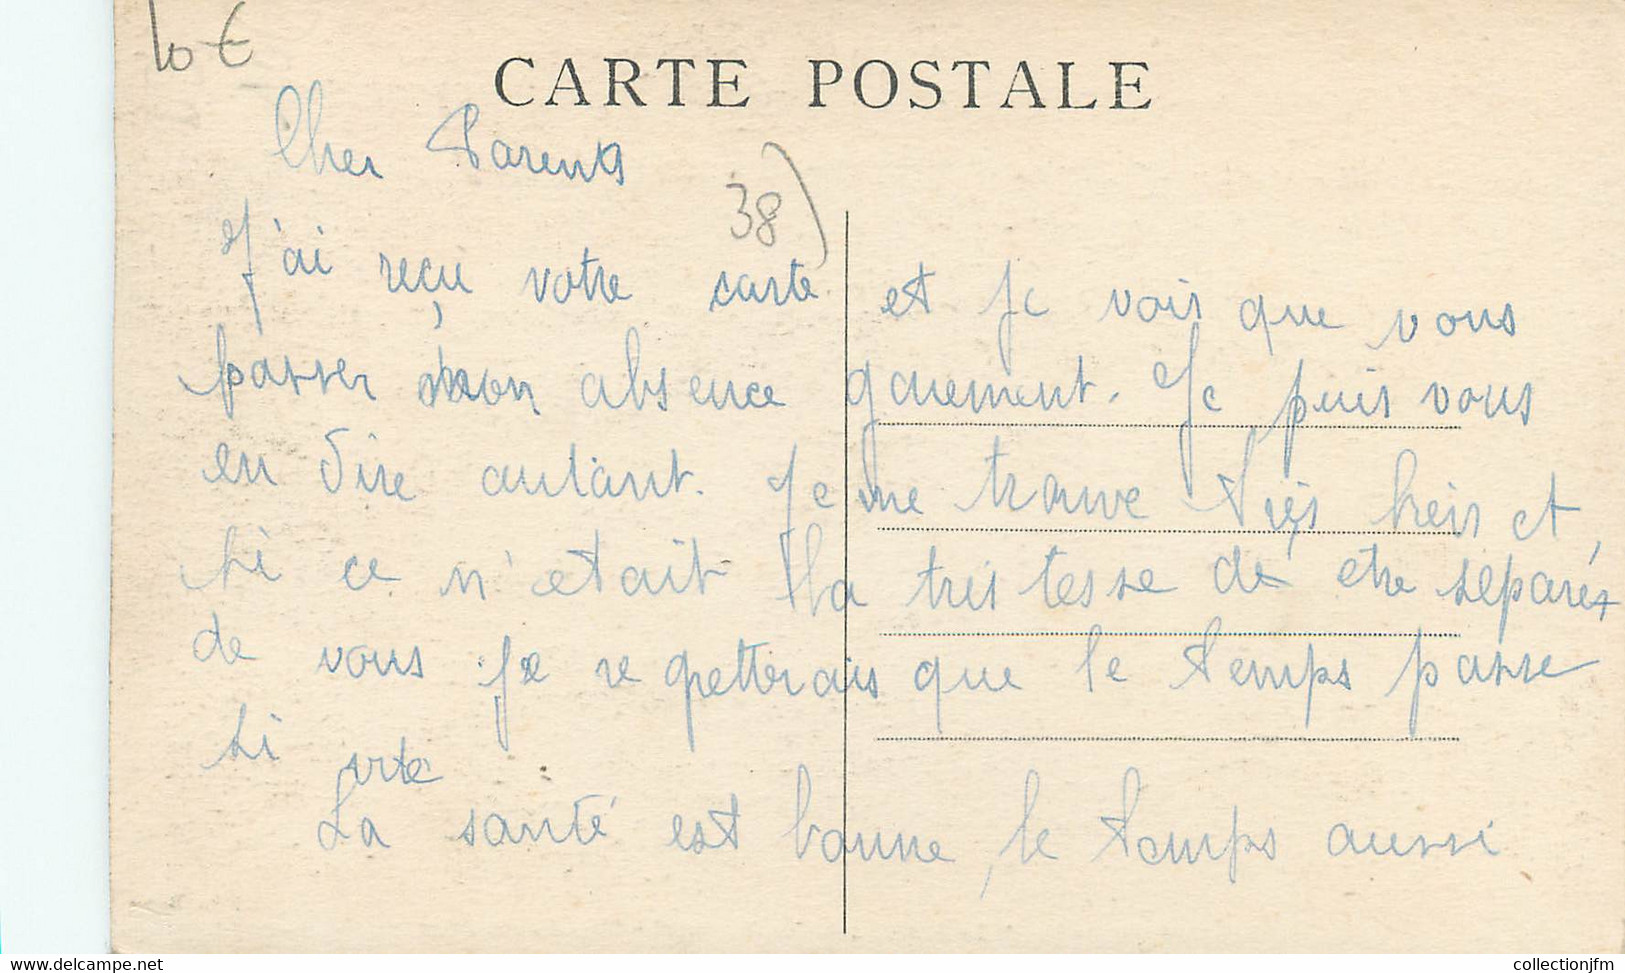 10 €
CARTE POSTALE
Cher Parents
38)
J'ai reçu votre carte et je vois que vous
passer mon absence gauement. Je puis vous
en dire autant. Je me trouve très bein et
si ce n'etait la tristesse de etre séparés
de vous je regretterais que le temps passe
si vite
La santé est bonne, le temps aussi
delcampe.net
collectionjfm